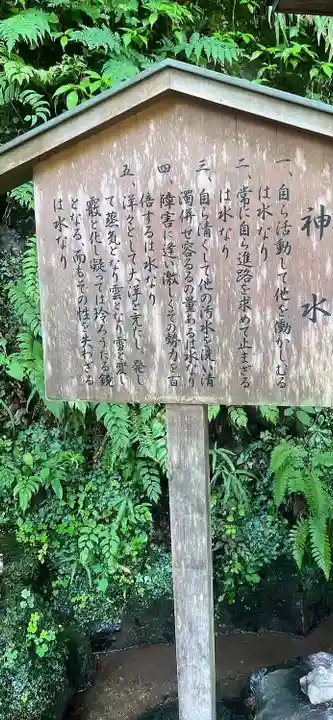 神水
一、自ら活動して他を働かしむる
は水なり
二、常に自ら進路を求めて止まざる
は水なり
三、自ら清くして他の汚水を洗い清
濁併せ容るるの量あるは水なり
四、障害に逢い激しくその勢力を百
倍するは水なり
五、洋々として大洋を充だし、発し
て蒸気となり雲となり雪と変し
霰と化し凝っては玲ろうたる鏡
となる、而もその性を失わざる
は水なり